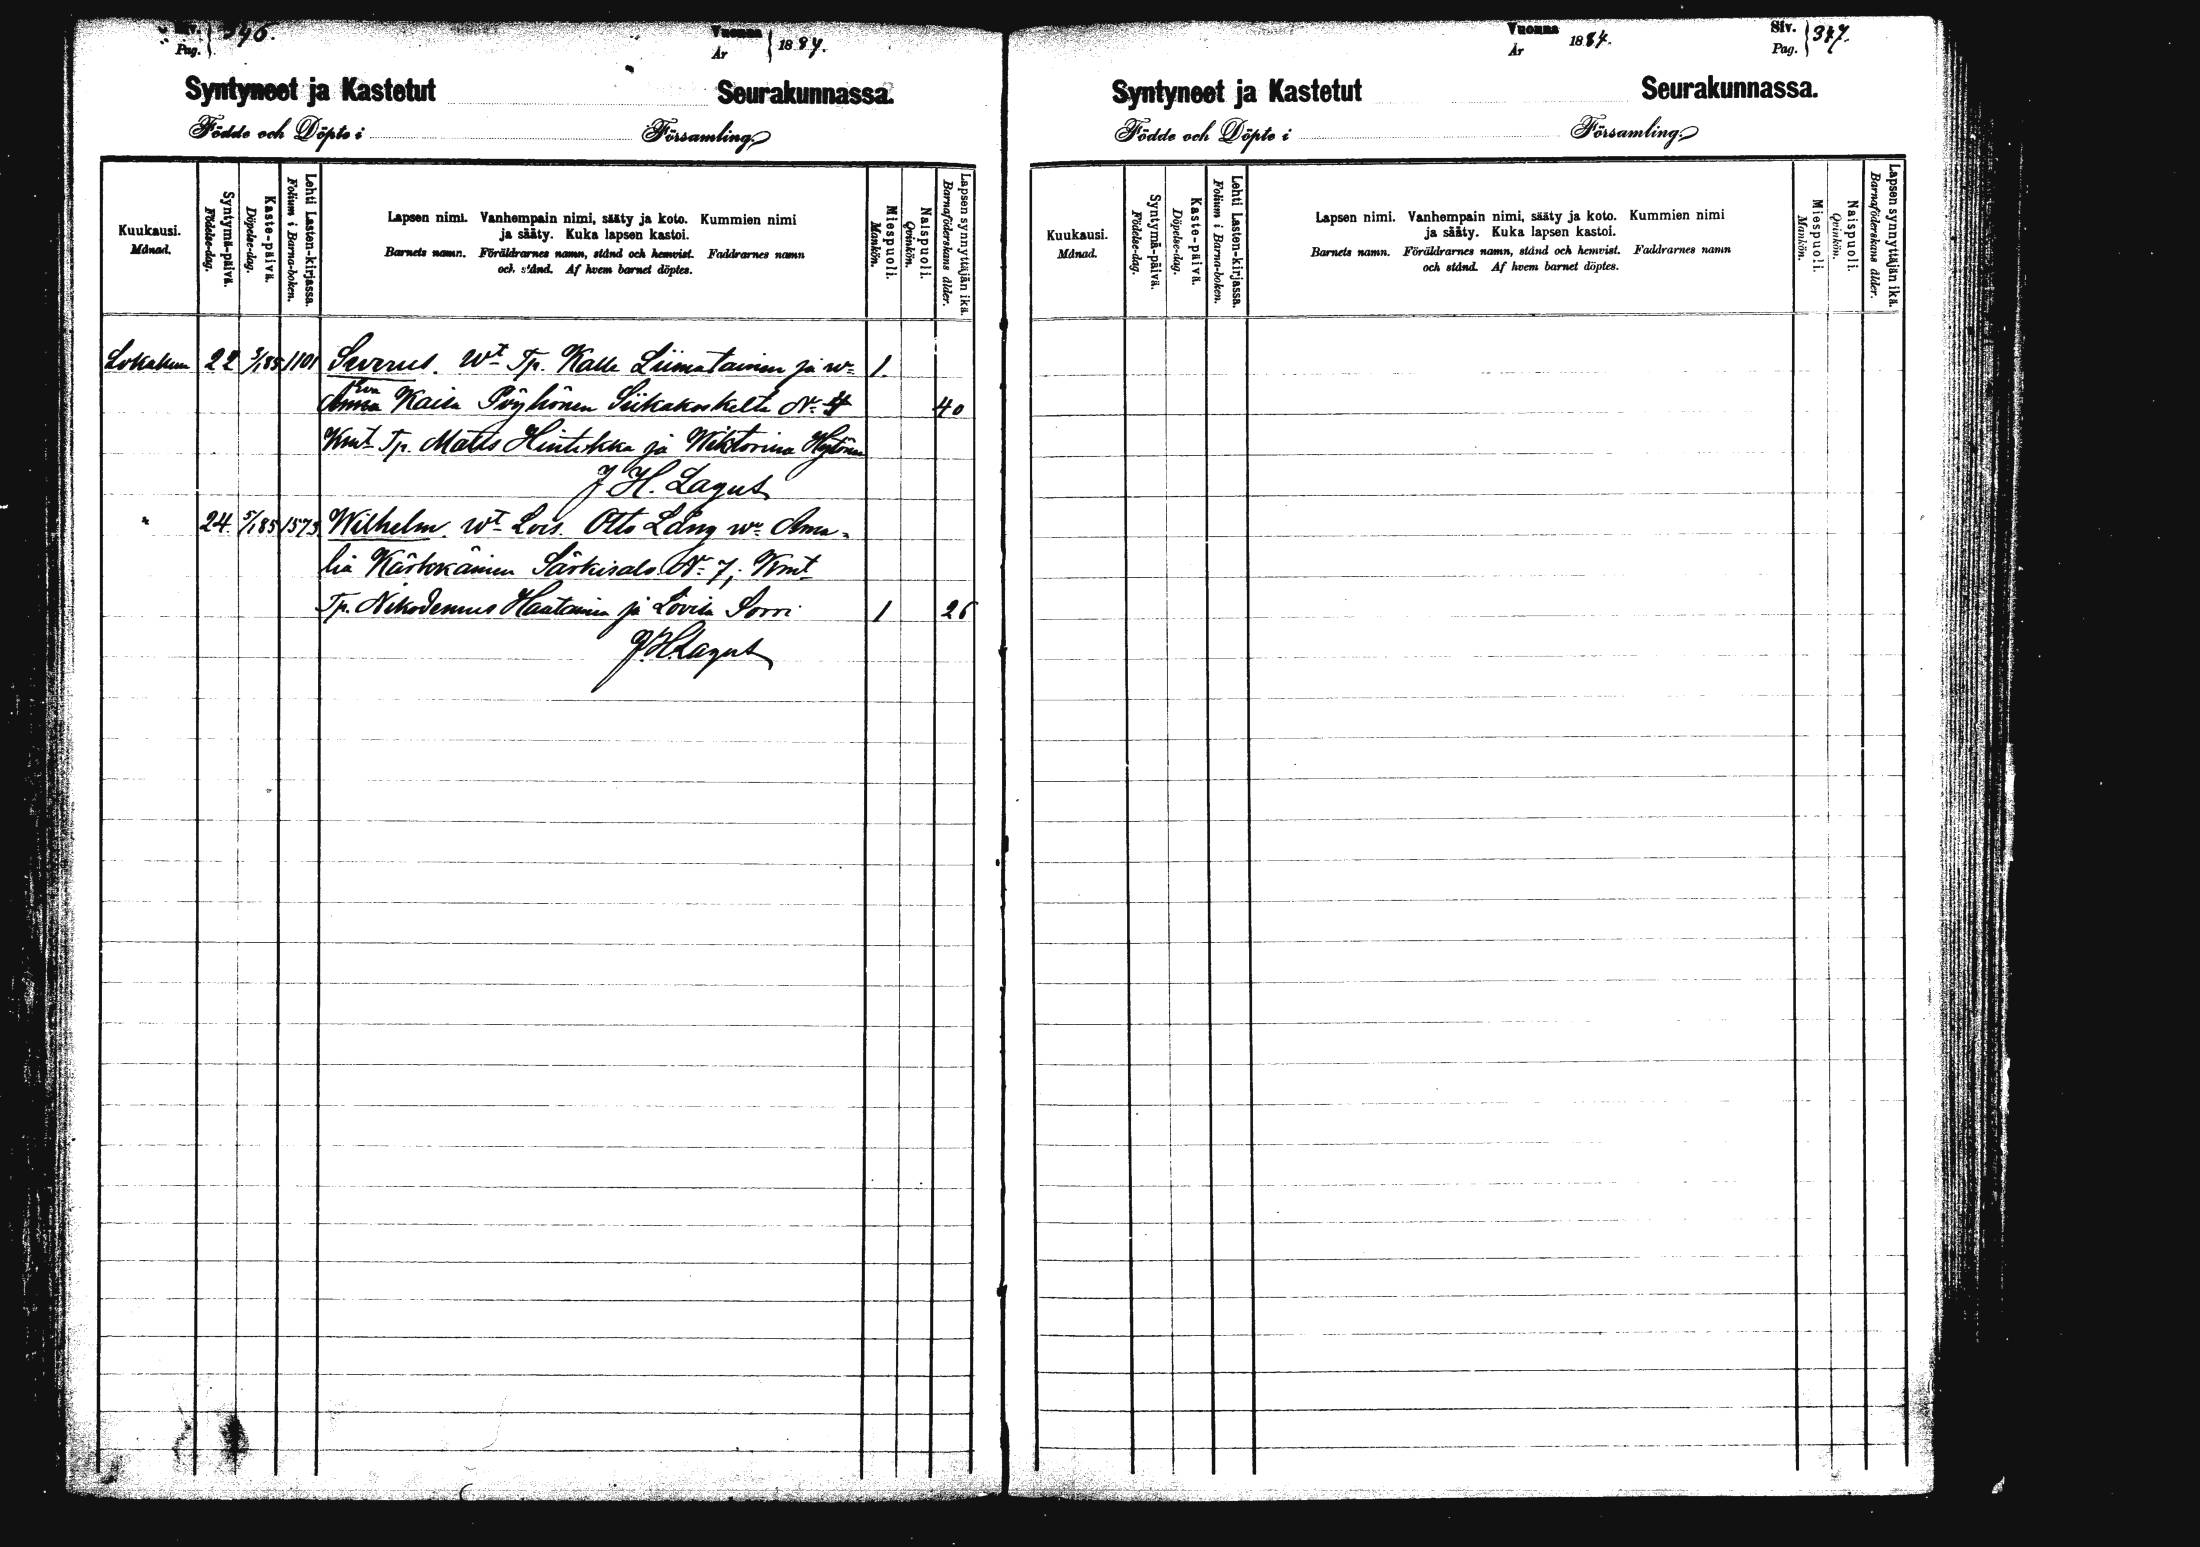 Siv. Pag. } 346.
Vuonna År } 1884.
Syntyneet ja Kastetut Seurakunnassa.
Födde och Döpte i Församling.
Kuukausi. Månad.
Syntymä-päivä. Födelse-dag.
Kaste-päivä. Döpelse-dag.
Lehti Lasten-kirjassa. Folium i Barna-boken.
Lapsen nimi. Vanhempain nimi, sääty ja koto. Kummien nimi
ja sääty. Kuka lapsen kastoi.
Barnets namn. Föräldrarnes namn, stånd och hemvist. Faddrarnes namn
och stånd. Af hvem barnet döptes.
Miespuoli. Mankön.
Naispuoli. Qvinkön.
Lapsen synnyttäjän ikä. Barnaföderskans ålder.
Lokakuu 22 3/1 85 1101 Severus. Wt Tp. Kalle Liimatainen ja w: 1.
Eva
Anna Kaisa Pöyhönen Siikakoskelta No 4 40
Kmt Tp. Matts Hintikka ja Wiktorina Hytönen
J H. Lagus
" 24. 5/1 85 1573 Wilhelm. Wt Lois. Otto Lång w: Ama-
lia Kärkkäinen Särkisalo No 7; Kmt
Tp. Nikodemus Hautainen ja Lovisa Sorri 1 26
J. H. Lagus
Vuonna År 1884.
Siv. Pag. } 347.
Syntyneet ja Kastetut Seurakunnassa.
Födde och Döpte i Församling.
Kuukausi. Månad.
Syntymä-päivä. Födelse-dag.
Kaste-päivä. Döpelse-dag.
Lehti Lasten-kirjassa. Folium i Barna-boken.
Lapsen nimi. Vanhempain nimi, sääty ja koto. Kummien nimi
ja sääty. Kuka lapsen kastoi.
Barnets namn. Föräldrarnes namn, stånd och hemvist. Faddrarnes namn
och stånd. Af hvem barnet döptes.
Miespuoli. Mankön.
Naispuoli. Qvinkön.
Lapsen synnyttäjän ikä. Barnaföderskans ålder.